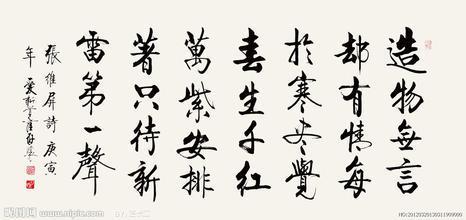 造物無言
却有情每
於寒尽覺
春生千紅
萬紫安排
著只待新
雷第一聲
張維屏詩庚寅
年
昵图网
www.nipic.com